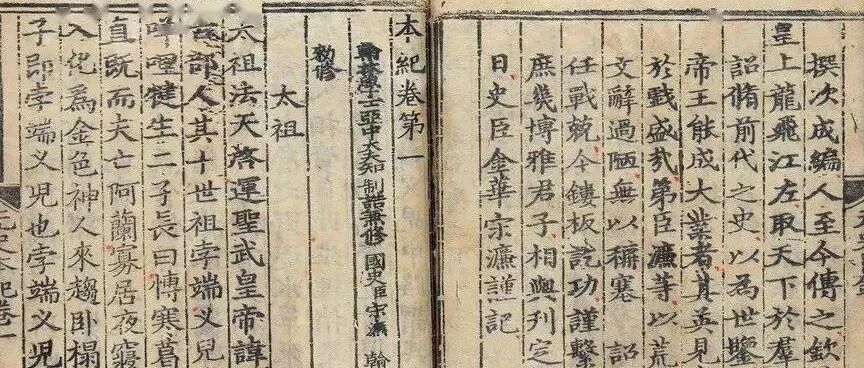 撰次成編人至今傳之欽
皇上龍飛江左取天下於羣
詔脩前代之史以為世鑒
帝王能成大業者其英見
於戲盛㢤第臣濂等以荒
文辭過陋無以稱塞 詔
任戰兢今鏤板訖功謹繫
庶幾博雅君子相與刊定
日史臣金華宋濂謹記
本紀卷第一
翰林學士亞中大夫知制誥兼修國史臣宋濂 翰
敕修
太祖
太祖法天啓運聖武皇帝諱
部人其十世祖孛端义兒
哩犍生二子長曰博寒葛
直既而夫亡阿蘭寡居夜寢
入化為金色神人來趨卧榻
子即孛端义兒也孛端义兒
元史本紀卷一